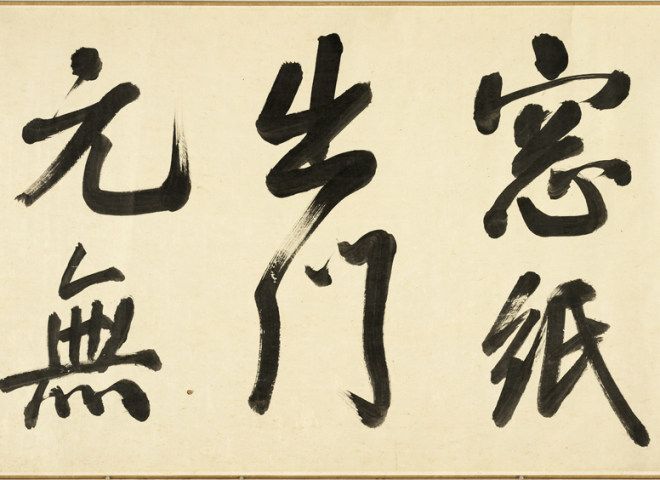 窓紙
出門
元無